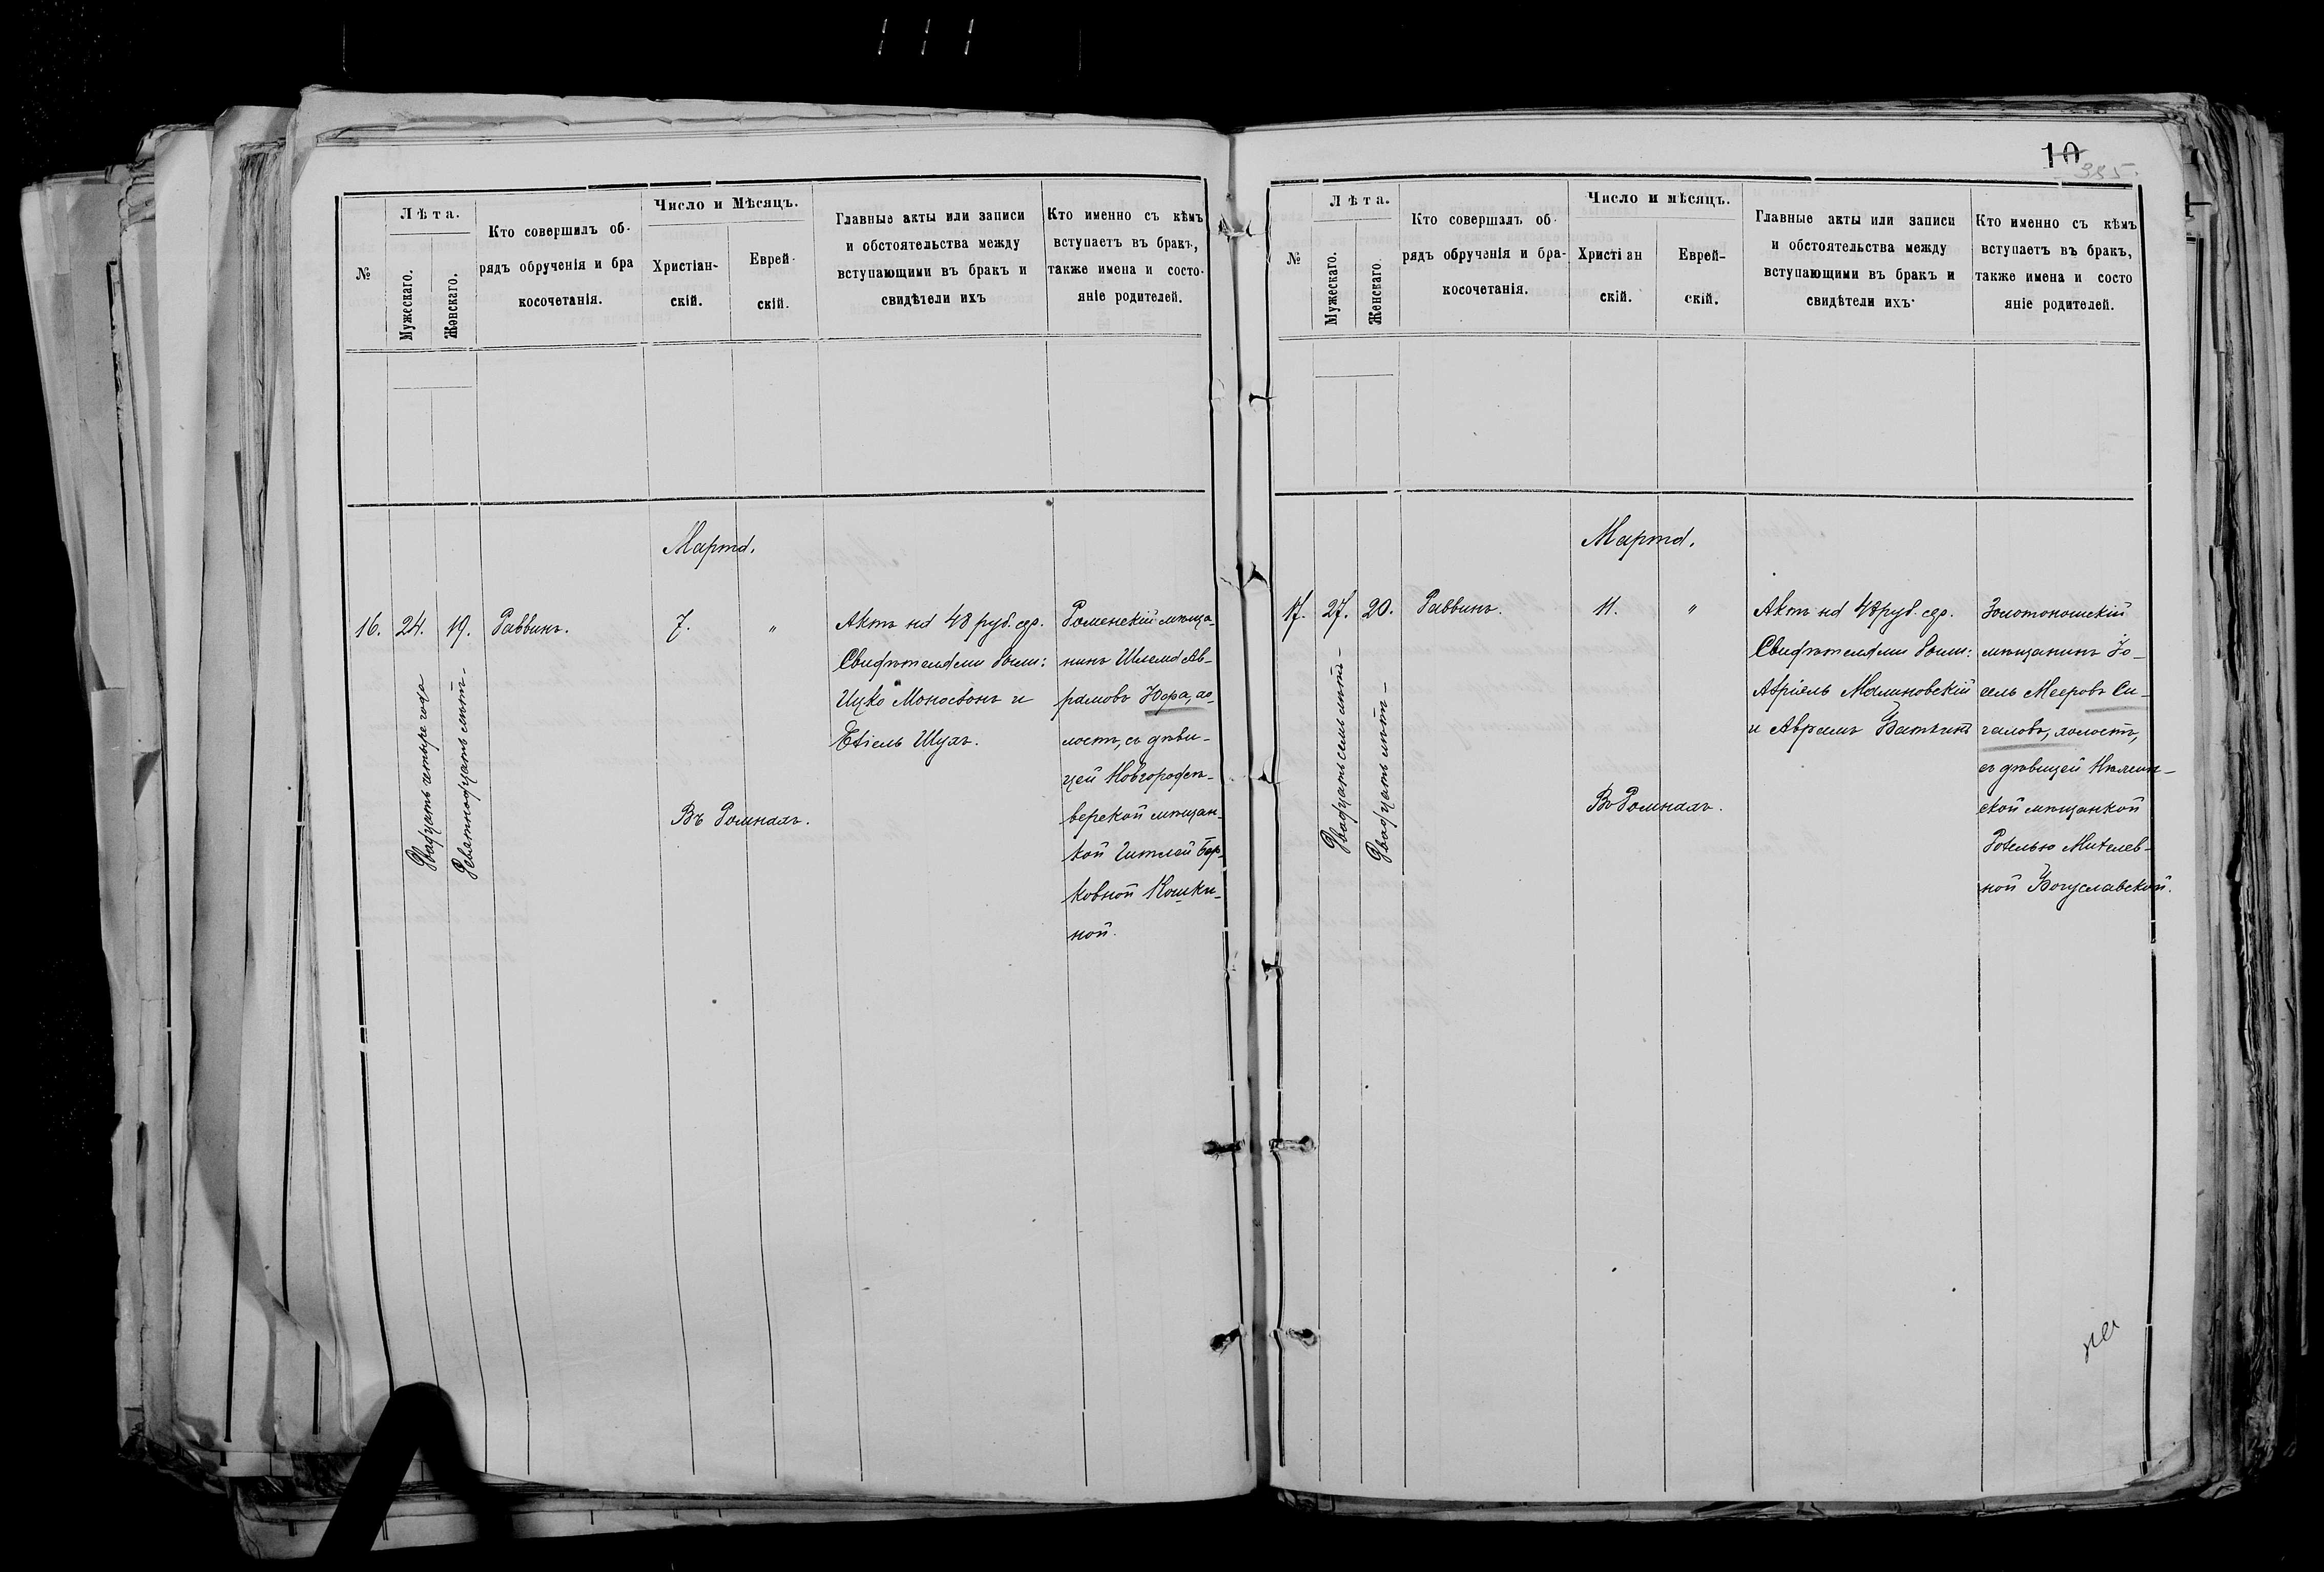 10
385.
№
Лѣта.
Мужескаго.
Женскаго.
Кто совершилъ об-
рядъ обрученія и бра
косочетанія.
Число и Мѣсяцъ.
Христіан-
скій.
Еврей-
скій.
Главные акты или записи
и обстоятельства между
вступающими въ бракъ и
свидѣтели ихъ
Кто именно съ кѣмъ
вступаетъ въ бракъ,
также имена и состо-
яніе родителей.
Марта.
16.
24.
Двадцать четыре года
19.
Девятнадцать лѣтъ
Раввинъ.
7.
"
Въ Ромнахъ.
Актъ на 48 руб. сер.
Свидѣтелями были:
Ицко Моносзонъ и
Ехіель Шухъ.
Роменскій мѣща-
нинъ Шлема Аб-
рамовъ Юфа, хо-
лостъ, съ дѣви-
цей Новгородсѣ-
верской мѣщан-
кой Гитлей Бор-
ковной Кошки-
ной.
№
Лѣта.
Мужескаго.
Женскаго.
Кто совершалъ об-
рядъ обрученія и бра-
косочетанія.
Число и мѣсяцъ.
Христіан
скій.
Еврей-
скій.
Главные акты или записи
и обстоятельства между
вступающими въ бракъ и
свидѣтели ихъ
Кто именно съ кѣмъ
вступаетъ въ бракъ,
также имена и состо
яніе родителей.
Марта.
17.
27.
Двадцать семь лѣтъ
20.
Двадцать лѣтъ
Раввинъ.
11.
"
Въ Ромнахъ.
Актъ на 48 руб. сер.
Свидѣтелями были:
Азріель Малиновскій
и Аврамъ Баткинъ
Золотоношскій
мѣщанинъ Іо-
сель Мееровъ Си-
галовъ, холостъ,
съ дѣвицей
ской мѣщанкой
Рохелью Михелев-
ной Богуславской.